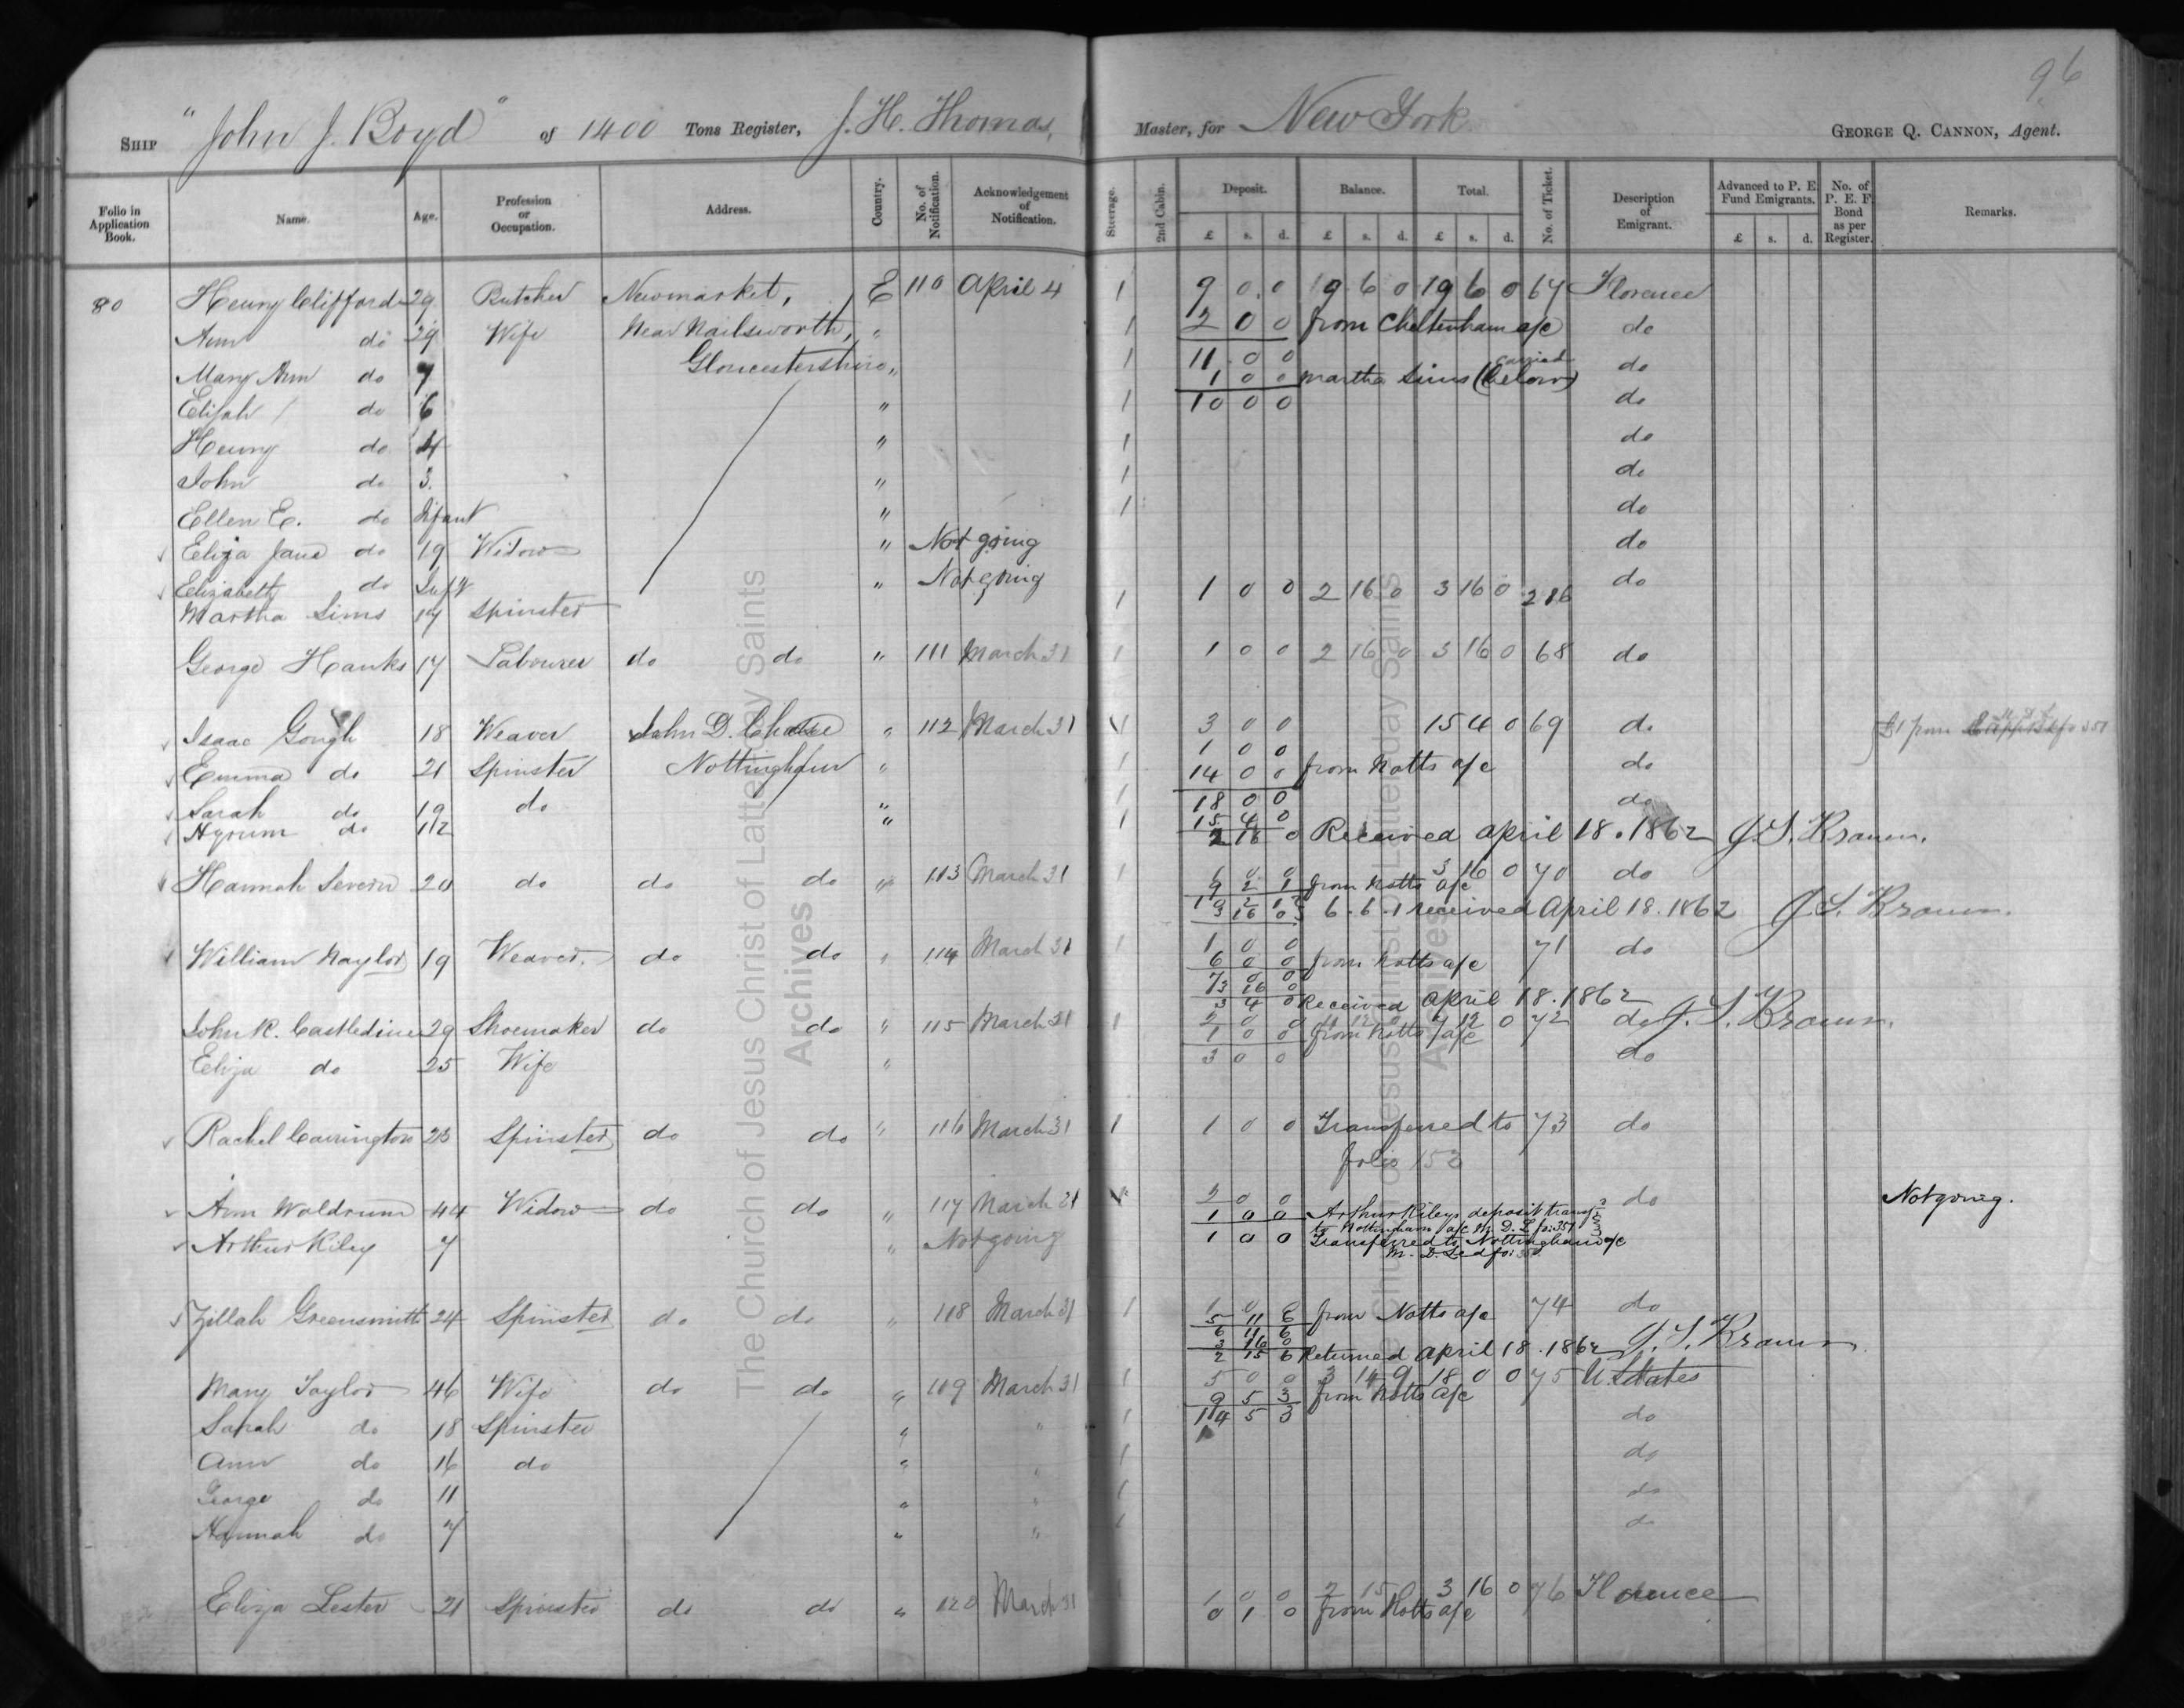 96
SHIP "John J. Boyd" of 1400 Tons Register, J. H. Thomas, Master, for New York GEORGE Q. CANNON, Agent.
Folio in Application Book. Name. Age. Profession or Occupation. Address. Country. No. of Notification. Acknowledgement of Notification. Steerage. 2nd Cabin. Deposit. Balance. Total. No. of Ticket. Description of Emigrant. Advanced to P. E. Fund Emigrants. No. of P. E. F. Bond as per Register. Remarks.
£ s. d. £ s. d. £ s. d. £ s. d.
80 Henry Clifford 29 Butcher Newmarket, E 110 April 4 1 9 0 0 9 6 0 19 6 0 67 Florence
Ann do 29 Wife Near Nailsworth, " 1 2 0 0 from Cheltenham a/c do
Mary Ann do 7 Gloucestershire " 1 11 0 0 do
1 0 0 Martha Sims (carried below)
Elijah do 6 " 1 10 0 0 do
Henry do 4 " 1 do
John do 3. " 1 do
Ellen E. do Infant " 1 do
Eliza Jane do 19 Widow " Not going do
Elizabeth do Inft " Not going do
Martha Sims 14 Spinster 1 1 0 0 2 16 0 3 16 0 286
George Hanks 17 Labourer do do " 111 March 31 1 1 0 0 2 16 0 3 16 0 68 do
Isaac Gough 18 Weaver John D. Chase " 112 March 31 1 3 0 0 15 4 0 69 do £1 from
1 0 0
Emma do 21 Spinster Nottingham " 1 14 0 0 from Notts a/c do
Sarah do 19 do " 1 18 0 0 do
15 4 0
Hyrum do 12 " 1 2 16 0 Received April 18. 1862 J. S. Brown.
Hannah Severn 20 do do do " 113 March 31 1 1 0 0 3 16 0 70 do
9 2 1 from Notts a/c
3 16 0 6. 6. 1 received April 18. 1862 J. S. Brown.
William Naylor 19 Weaver. do do " 114 March 31 1 1 0 0 71 do
6 0 0 from Notts a/c
7 0 0
3 16 0
3 4 0 Received April 18. 1862 J. S. Brown.
John R. Castledine 29 Shoemaker do do " 115 March 31 1 2 0 0 7 12 0 72 do
1 0 0 from Notts a/c
Eliza do 25 Wife " 3 0 0 do
Rachel Carrington 23 Spinster do do " 116 March 31 1 1 0 0 Transferred to 73 do
folio 153
Ann Woldrum 44 Widow do do " 117 March 31 2 0 0 do Not going.
1 0 0 Arthur Kiley's deposit transf
to Nottingham a/c M. D. L fo: 351
Arthur Kiley 7 " Not going 1 0 0 Transferred to Nottingham a/c
M. D. Led fo:
Zillah Greensmith 24 Spinster do do " 118 March 31 1 1 0 0 74 do
5 11 6 from Notts a/c
6 11 6
3 16 0
2 15 6 Returned April 18. 1862 J. S. Brown
Mary Taylor 46 Wife do do " 119 March 31 1 5 0 0 3 14 9 18 0 0 75 U. States
9 5 3 from Notts a/c
Sarah do 18 Spinster " " 1 14 5 3 do
Ann do 16 do " " 1 do
George do 11 " " 1 do
Hannah do 7 " " 1 do
Eliza Lester 21 Spinster do do " 120 March 31 1 0 0 2 15 3 16 0 76 Florence
0 1 0 from Notts a/c
The Church of Jesus Christ of Latter-day Saints
Archives